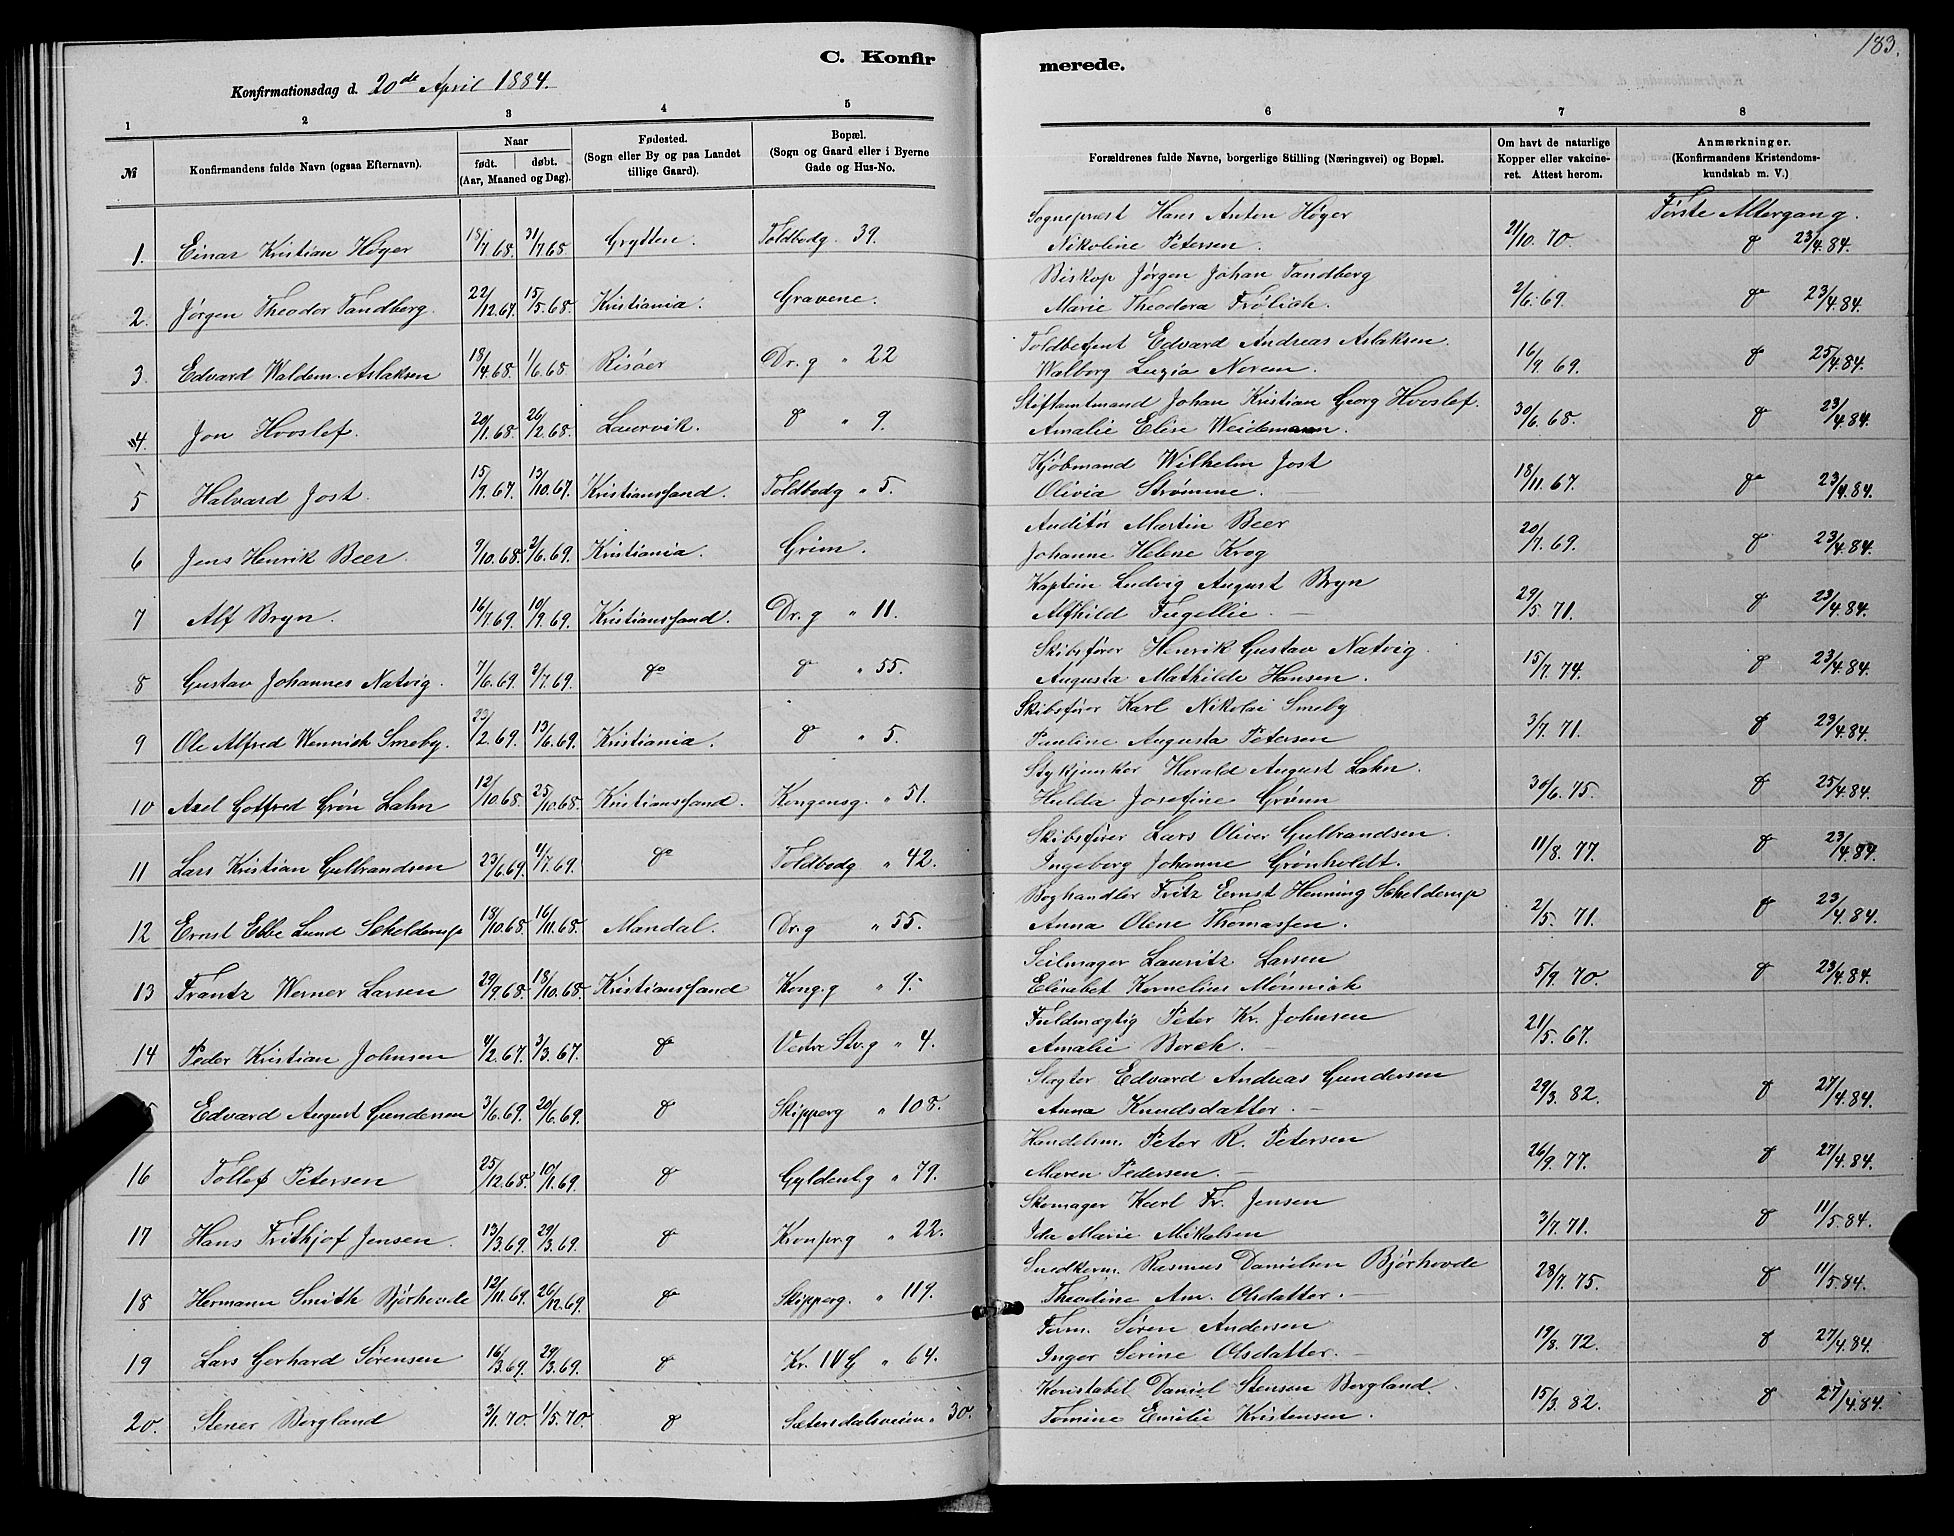 183.
C. Konfirmerede.
Konfirmationsdag d. 20de April 1884.
1 2 3 4 5 6 7 8
№ Konfirmandens fulde Navn (ogsaa Efternavn). Naar født. døbt. (Aar, Maaned og Dag). Fødested. (Sogn eller By og paa Landet tillige Gaard). Bopæl. (Sogn og Gaard eller i Byerne Gade og Hus-No. Forældrenes fulde Navne, borgerlige Stilling (Næringsvei) og Bopæl. Om havt de naturlige Kopper eller vakcineret. Attest herom. Anmærkninger. (Konfirmandens Kristendomskundskab m. V.)
Første Altergang.
1. Einar Kristian Høyer 18/7.68. 31/7.68 Grytten. Toldbodg. 39. Sogneprest Hans Anton Høyer
Nikoline Petersen. 21/10. 70. do 23/4.84.
2. Jørgen Theodor Tandberg. 22/12.67. 15/5.68. Kristiania. Gravene. Biskop Jørgen Johan Tandberg
Marie Theodora Frølich. 2/6.69. do 23/4.84.
3. Edvard Waldem. Aslaksen 18/4.68. 1/6.68 Risøer Dr.g " 22 Toldbetjent Edvard Andreas Aslaksen.
Walborg Luzia Norem. 16/9. 69. do 25/4.84.
"4. Jon Hvoslef. 20/1.68. 26/2.68. Laurvik. do " 9. Stiftamtmand Johan Kristian Georg Hvoslef.
Amalie Elise Weidemann. 30/6.68. do 23/4.84.
5 Halvard Jost. 15/9.67. 13/10.67. Kristianssand. Toldbodg " 5. Kjøbmand Wilhelm Jost
Olivia Strømme. — 18/11.67. do 23/4.84.
6 Jens Henrik Beer. 9/10.68. 2/6.69. Kristiania. Grim. Auditør Martin Beer
Johanne Helene Krog 20/7.69. do 23/4.84.
7 Alf Bryn. 16/7.69. 10/9.69. Kristianssand. Dr.g " 11. Kaptein Ludvig August Bryn
Alfhild Fugellie. — 29/5.71. do 23/4.84.
8 Gustav Johannes Natvig. 7/6.69. 2/7.69. do do " 55. Skibsfører Henrik Gustav Natvig.
Augusta Mathilde Hansen. 15/7.74. do 23/4.84.
9 Ole Alfred Wennich Smeby. 23/2.69. 13/6.69. Kristiania. do " 5. Skibsfører Karl Nikolai Smeby
Pauline Augusta Petersen 3/7.71. do 23/4.84.
10 Axel Gotfred Grøn Lahn 12/10.68. 25/10.68. Kristianssand. Kongensg. " 51. Stykjunker Harald August Lahn.
Hulda Josefine Grønn 30/6.75. do 25/4.84.
11 Lars Kristian Gulbrandsen 23/6.69. 4/7.69. do Toldbodg " 42. Skibsfører Lars Oliver Gulbrandsen.
Ingeborg Johanne Grønholdt. 11/8.77. do 23/4.84.
12 Ernst Ebbe Lund Schelderup 18/10.68. 16/11.68. Mandal. Dr.g " 55. Boghandler Fritz Ernst Henning Schelderup
Anna Olene Thomassen. 2/5.71. do 23/4.84.
13 Frantz Werner Larsen 29/9.68. 18/10.68. Kristianssand Kong.g " 9. Seilmager Lauritz Larsen
Elisabet Kornelius Mønnich 5/9.70. do 23/4.84.
14 Peder Kristian Johnsen 4/2.67. 3/3.67. do Vestre Stv.g " 4. Fuldmægtig Peter Kr. Johnsen
Amalie Borch. — 21/5.67.
5 Edvard August Gundersen 3/6.69. 20/6.69. do Skipperg " 108. Slagter Edvard Andreas Gundersen
Anna Knudsdatter. — 29/3.82. do 27/4.84.
16 Tollef Petersen 25/12.68. 10/1.69. do Gyldenl.g " 79. Handelsm. Peter R. Petersen
Maren Pedersen. — 26/9.77. do 27/4.84.
17 Hans Frithjof Jensen. 13/3.69. 29/3.69. do Kronpr.g " 22. Skomager Karl Fr. Jensen
Ida Marie Mikalsen 3/7.71. do 11/5.84.
18 Hermann Smith Bjørhovde 12/11.69. 26/12.69. do Skipperg. " 119. Snedkerm. Rasmus Danielsen Bjørhovde
Theodine Am. Olsdatter. — 28/7.75. do 11/5.84.
19 Lars Gerhard Sørensen 16/3.69. 29/3.69. do Kr. IV G " 64. Tørm. Søren Andersen
Inger Serine Olsdatter. — 19/8.72. do 27/4.84.
20. Stener Bergland 3/1.70. 1/5.70. do Sætersdalsveien. 30. Konstabel Daniel Stensen Bergland.
Tomine Emilie Kristensen. 15/3.82. do 27/4.84.